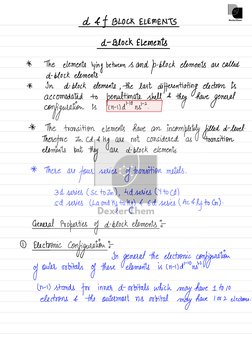 d & f BLOCK ELEMENTS
d-Block Elements
* The elements lying between s and p-block elements are called
d-block elements
* In d-block elements, the last differentiating electron is
accomodated to penultimate shell & they have general
configuration is (n-1)d¹⁻¹⁰ ns¹⁻²
* The transition elements have an incompletely filled d-level
Therefore Zn Cd & Hg are not considered as transition
elements but they are d-block elements.
* There are four series of transition metals.
3d series (Sc to Zn), 4d series (Y to Cd)
5d series (La and Hf to Hg) & 6d series (Ac & Rf to Cn).
DexterChem
General Properties of d-block elements :-
① Electronic Configuration :-
In general the electronic configuration
of outer orbitals of these elements is (n-1)d¹⁻¹⁰ns¹⁻²
(n-1) stands for inner d-orbitals which may have 1 to 10
electrons & the outermost ns orbital may have 1 or 2 electrons.